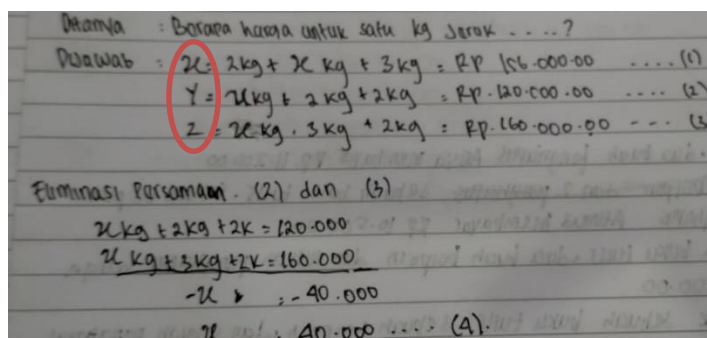 Ditanya : Berapa harga untuk satu kg Jeruk ....?
Dijawab : x = 2kg + x kg + 3kg = Rp 156.000.00 ....(1)
Y = x kg + 2kg + 2kg = Rp. 120.000.00 .... (2)
Z = x kg . 3kg + 2kg = Rp. 160.000.00 --- (3
Eliminasi Persamaan. (2) dan (3)
x kg + 2kg + 2k = 120.000
x kg + 3kg + 2k = 160.000
-x = -40.000
x 40.000 .... (4).